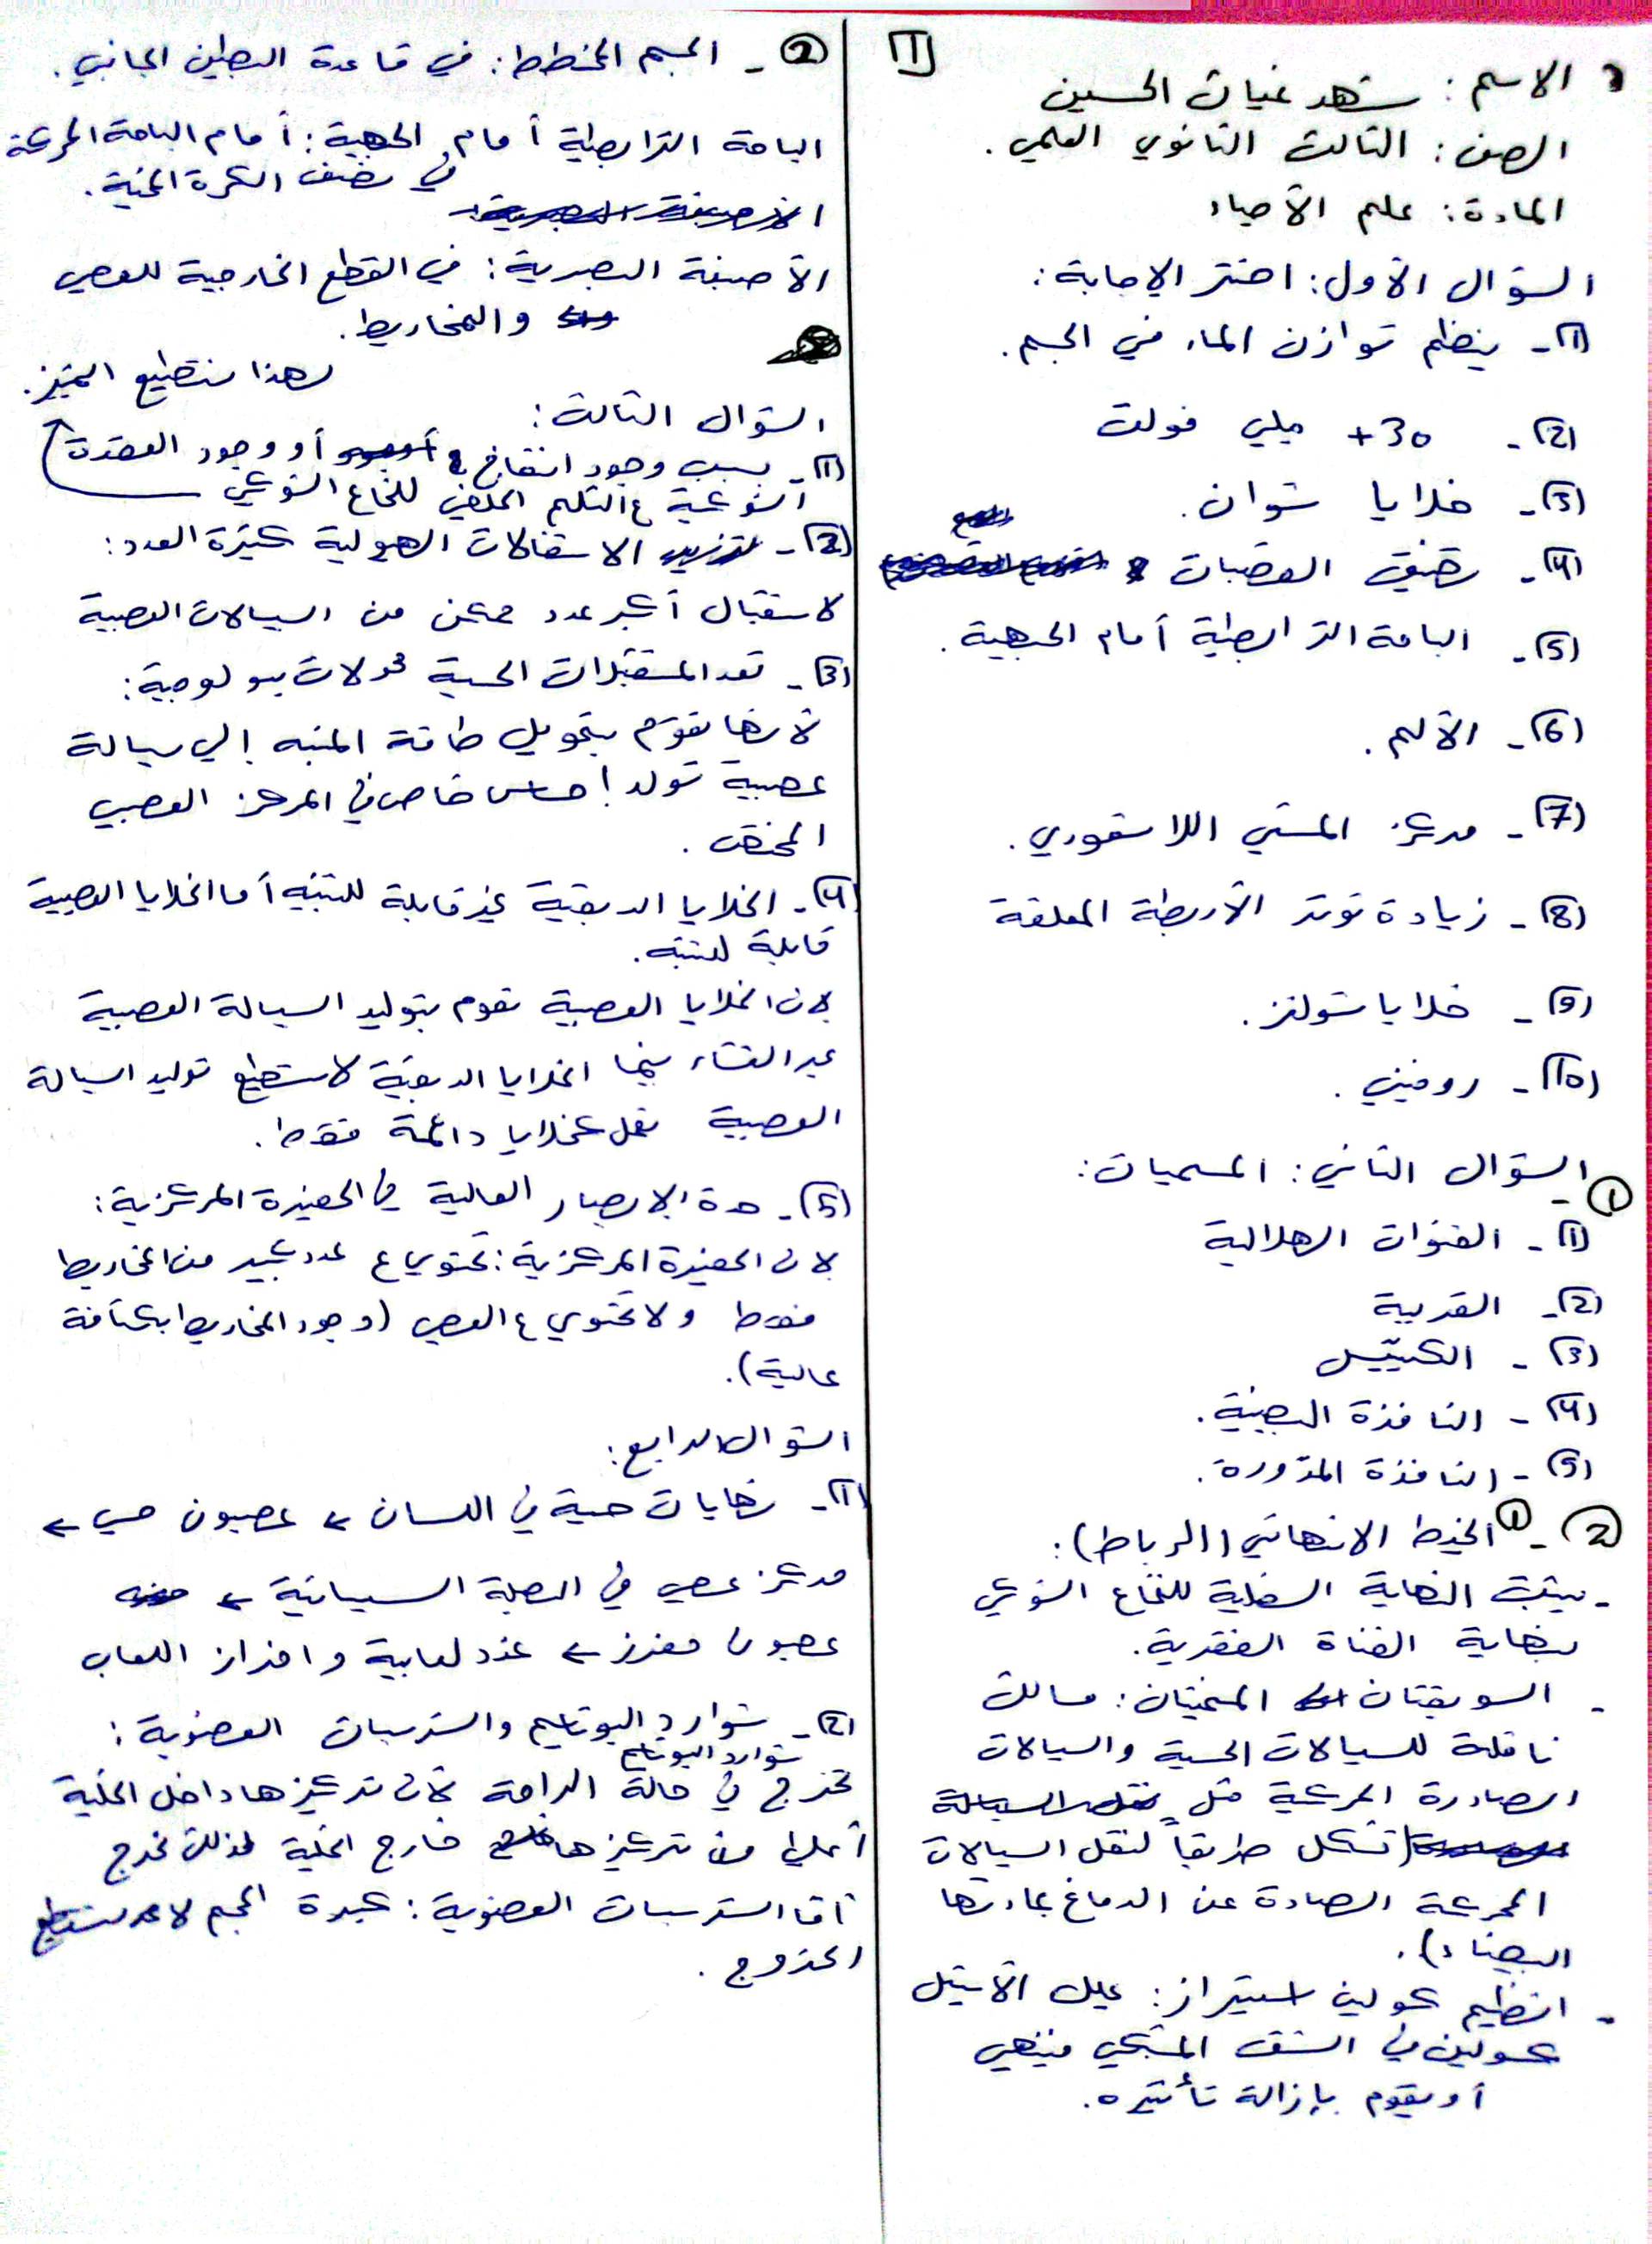 [1]
الاسم : شهد غياث الحسين
الصف : الثالث الثانوي العلمي .
المادة : علم الأحياء
السؤال الأول : اختر الإجابة :
(1)- ينظم توازن الماء في الجسم .
(2)- +30 ميلي فولت
(3)- خلايا شوان .
(4)- تضيق القصبات
(5)- الباحة الترابطية أمام الجبهية .
(6)- الألم .
(7)- مركز المشي اللاشعوري .
(8)- زيادة توتر الأربطة المعلقة
(9)- خلايا شولتز .
(10)- روفيني .
السؤال الثاني : المسميات :
①
(1)- القنوات الهلالية
(2)- القريبة
(3)- الكييس
(4)- النافذة البيضية .
(5)- النافذة المدورة .
②- ① الخيط الانتهائي (الرباط) :
- يثبت النهاية السفلية للنخاع الشوكي
بنهاية القناة الفقرية .
- السويقتان المخيتان : مسالك
ناقلة للسيالات الحسية والسيالات
الصادرة الحركية مثل
(تشكل طريقاً لنقل السيالات
المحركة الصادة عن الدماغ بمادتها
البيضاء) .
- انظيم كولين استيراز : يفكك الأستيل
كولين في الشق المشبكي فينهي
أو يقوم بإزالة تأثيره .
②- الجسم المخطط : في قاعدة البطين الجانبي .
الباحة الترابطية أمام الجبهية : أمام الباحة المحركة
في نصف الكرة المخية .
الأصبغة البصرية : في القطع الخارجية للعصي
والمخاريط .
السؤال الثالث :
لهذا نستطيع التميز .
(1)- بسبب وجود انتفاخ أو وجود العقدة
الشوكية ع الثلم الخلفي للنخاع الشوكي
(2)- الاستطالات الهيولية كثيرة العدد :
لاستقبال أكبر عدد ممكن من السيالات العصبية
(3)- تعد المستقبلات الحسية محولات بيولوجية :
لأنها تقوم بتحويل طاقة المنبه إلى سيالة
عصبية تولد إحساس خاص في المركز العصبي
المختص .
(4)- الخلايا الدبقية غير قابلة للتنبه أما الخلايا العصبية
قابلة للتنبه .
لان الخلايا العصبية تقوم بتوليد السيالة العصبية
عبر الغشاء بينما الخلايا الدبقية لا تستطيع توليد السيالة
العصبية تعمل كخلايا داعمة فقط .
(5)- حدة الإبصار العالية في الحفيرة المركزية :
لان الحفيرة المركزية : تحتوي ع عدد كبير من المخاريط
فقط ولا تحتوي ع العصي (وجود المخاريط بكثافة
عالية) .
السؤال الرابع :
(1)- نهايات حسية في اللسان ← عصبون حسي ←
مركز عصبي في البصلة السيسائية ←
عصبون مفرز ← غدد لعابية وافراز اللعاب
(2)- شوارد البوتاسيم والشرسبات العضوية :
شوارد البوتاسيم
تخرج في حالة الراحة لأن تركيزها داخل الخلية
أعلى من تركيزها خارج الخلية لذلك تخرج
أما الشرسبات العضوية : كبيرة الحجم لا تستطيع
الخروج .